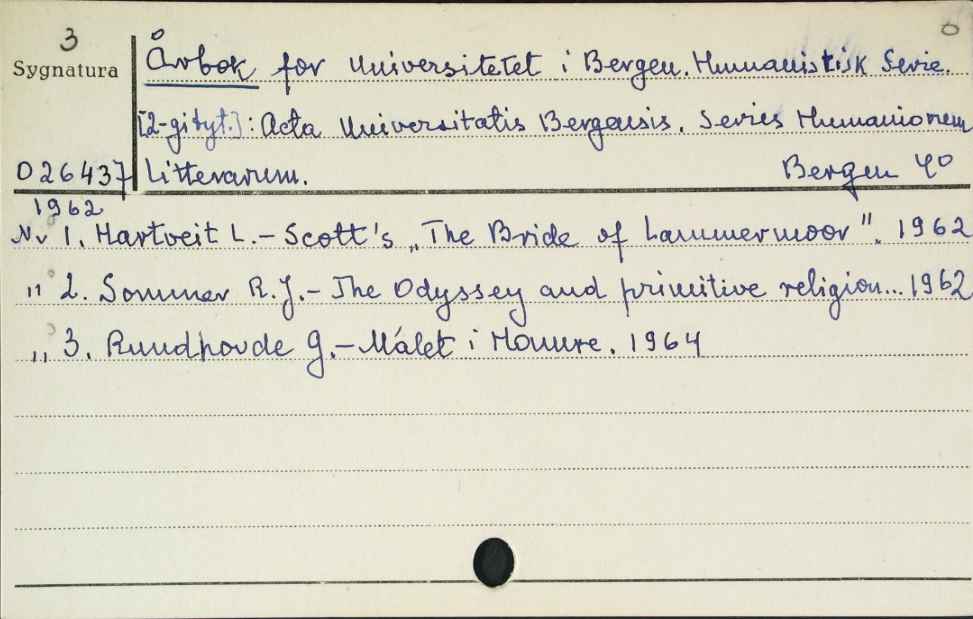 3
Sygnatura
Årbok for Universitetet i Bergen. Humanistisk Serie.
[2-gi tyt.]: Acta Universitatis Bergensis. Series Humaniorum
D 26437 Litterarum. Bergen 4°
1962
Nr 1. Hartveit L. - Scott's „The Bride of Lammermoor". 1962
" 2. Sommer R.J. - The Odyssey and primitive religion... 1962
" 3. Rundhovde G. - Målet i Hamre. 1964